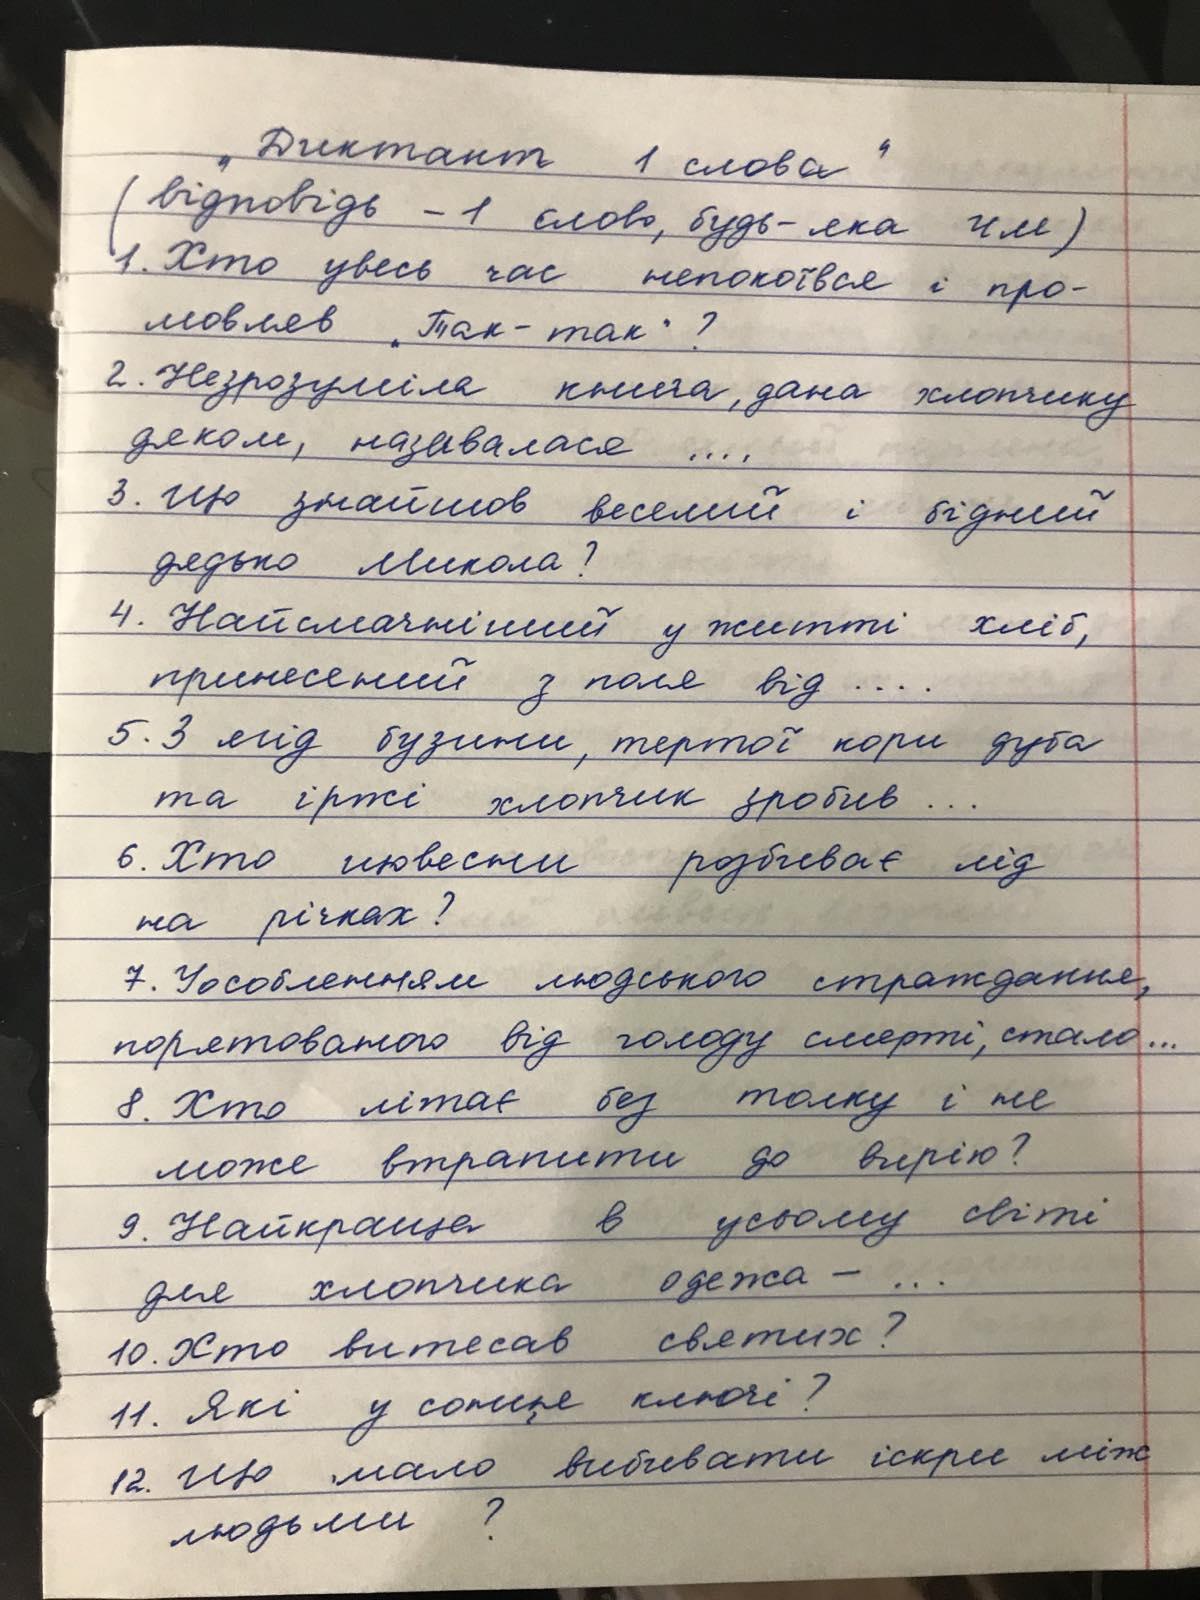 „Диктант 1 слова“
(відповідь – 1 слово, будь-яка ЧМ)
1. Хто увесь час непокоївся і про-
мовляв „Так-так“?
2. Незрозуміла книга, дана хлопчику
дяком, називалася ....
3. Що знайшов веселий і бідний
дядько Микола?
4. Найсмачніший у житті хліб,
принесений з поля від ....
5. З ягід бузини, тертої кори дуба
та іржі хлопчик зробив ...
6. Хто щовесни розбиває лід
на річках?
7. Уособленням людського страждання,
порятованого від голоду смерті, стало ...
8. Хто літає без толку і не
може втрапити до вирію?
9. Найкраща в усьому світі
для хлопчика одежа – ...
10. Хто витесав святих?
11. Які у сонця ключі?
12. Що мало вибивати іскри між
людьми ?